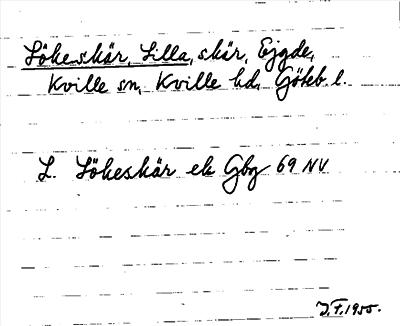 Sökeskär, Lilla, skär, Ejgde,
Kville sn, Kville hd, Göteb l.
L. Sökeskär ek Gbg 69 NV
J.F. 1950.